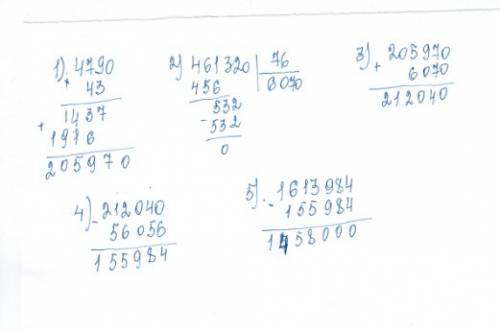 1) 4790
× 43
1437
+
1916
205970
2) 461320 | 76
456 6070
532
- 532
0
3) 205970
+ 6070
212040
4) - 212040
56056
155984
5) - 1613984
155984
1458000